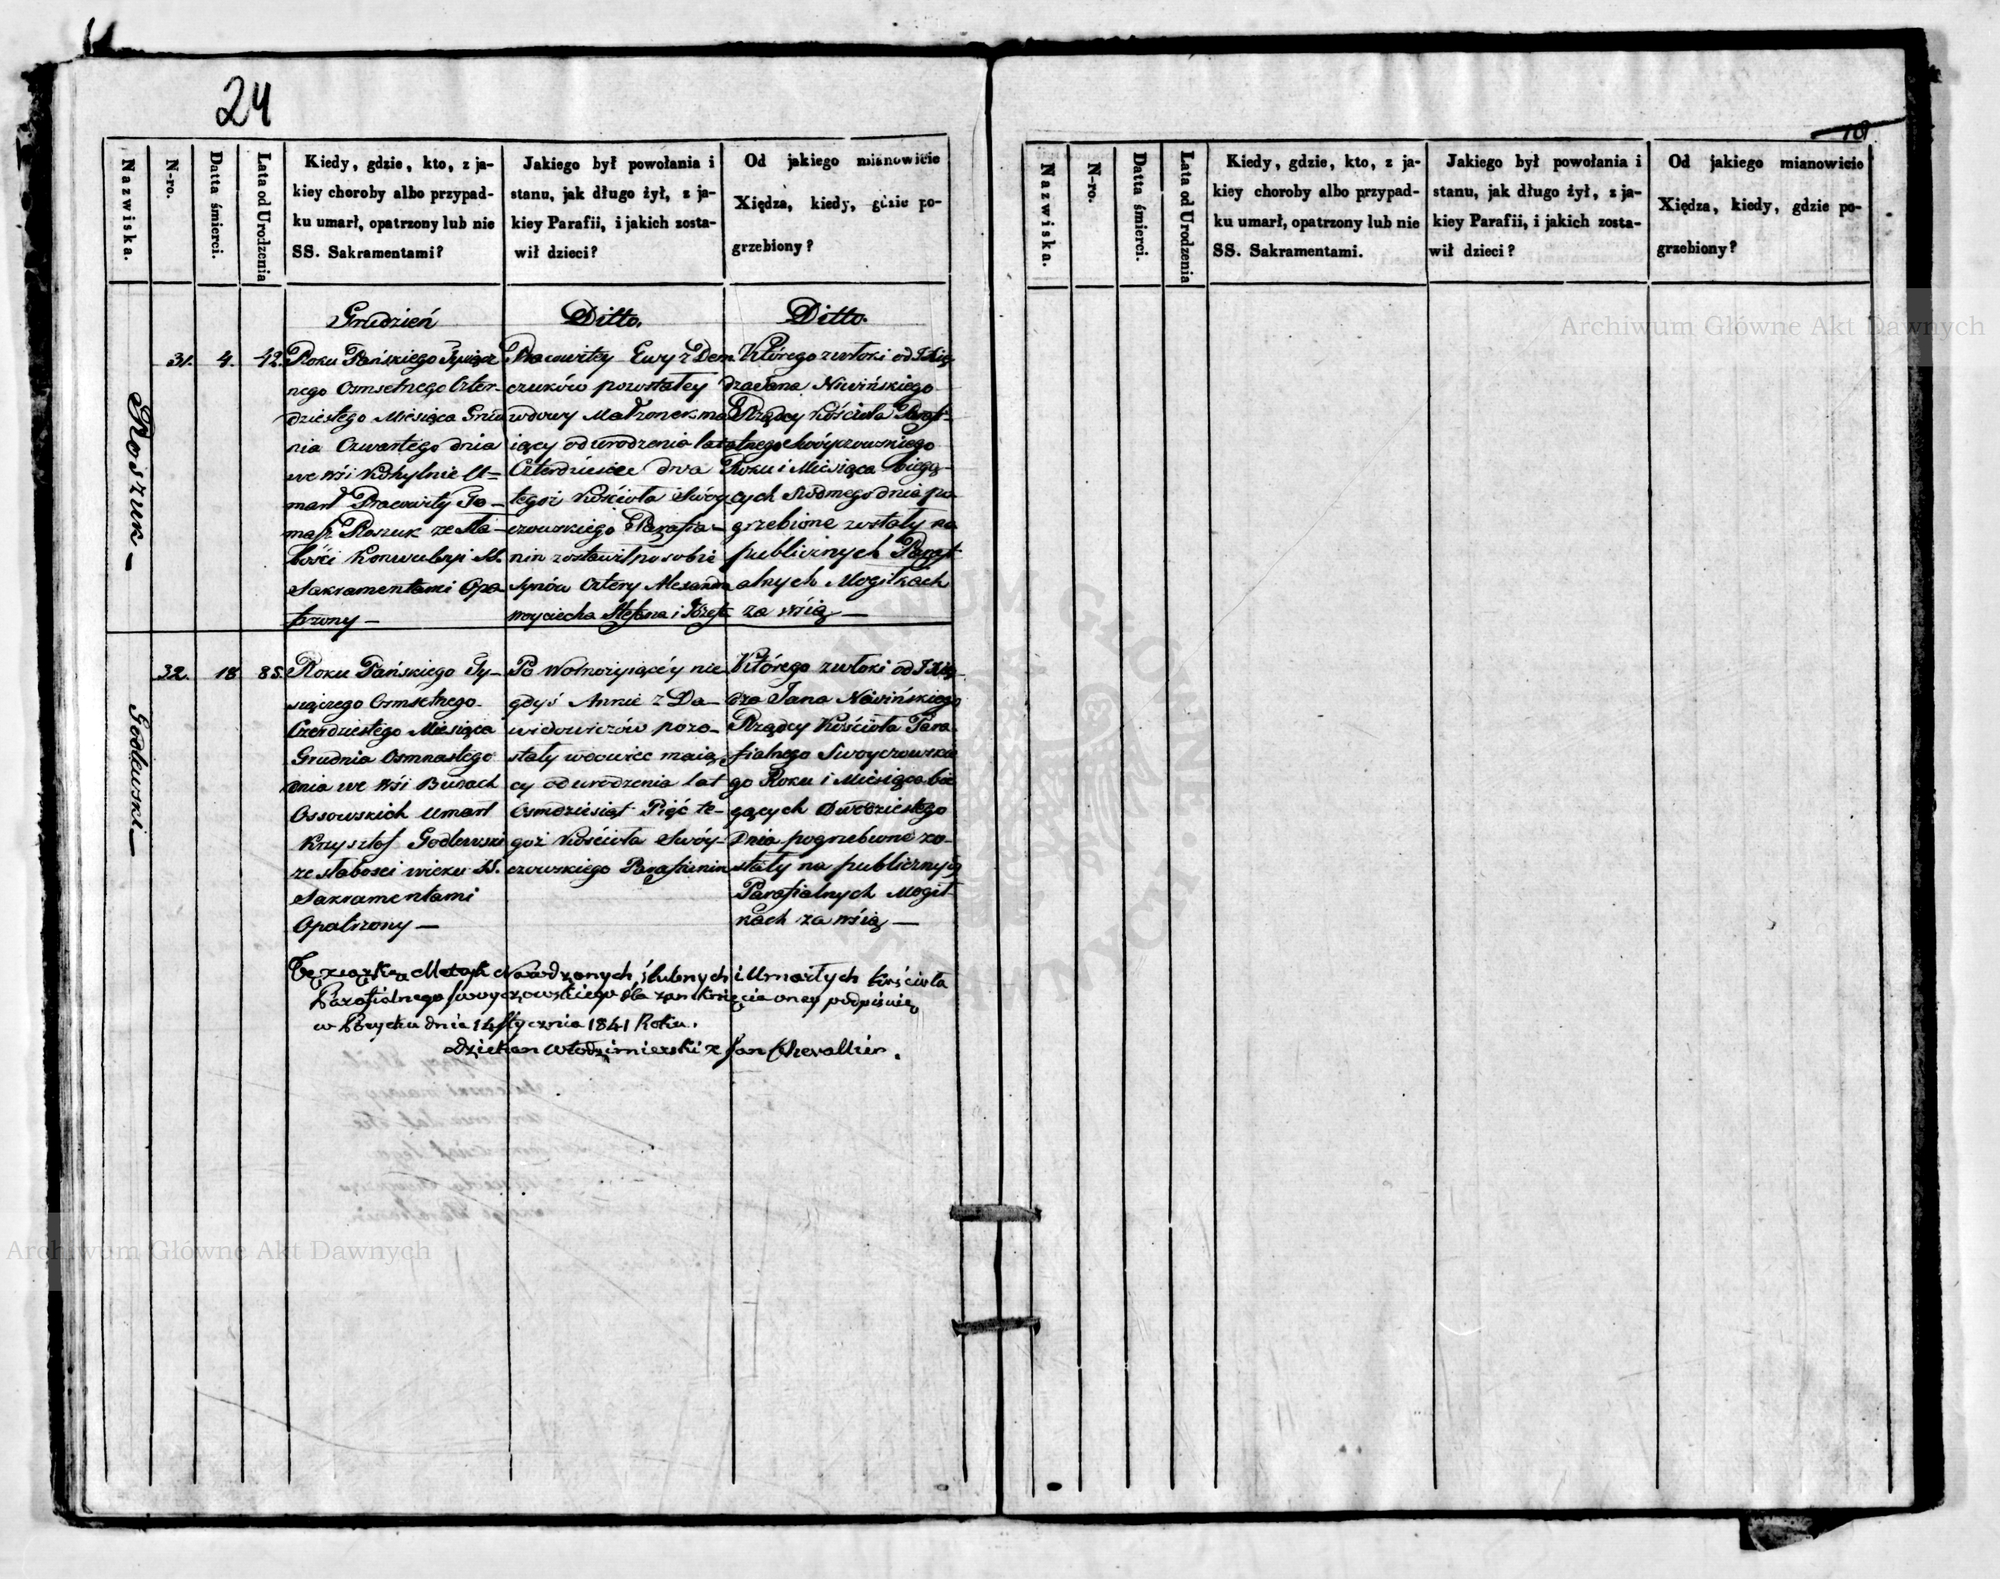 24
Nazwiska.
N-ro.
Datta śmierci.
Lata od Urodzenia
Kiedy, gdzie, kto, z ja-
kiey choroby albo przypad-
ku umarł, opatrzony lub nie
SS. Sakramentami?
Jakiego był powołania i
stanu, jak długo żył, z ja-
kiey Parafii, i jakich zosta-
wił dzieci?
Od jakiego mianowicie
Xiędza, kiedy, gdzie po-
grzebiony?
Grudzień
Roszuk —
31.
4.
42.
Roku Pańskiego Tysiącz
nego Osmsetnego Czter-
dziestego Miesiąca Grud
nia Czwartego dnia
we Wsi Kohylnie U=
marł Pracowity To-
masz Roszuk ze Sła-
bości Konwulsyi SS.
Sakramentami Opa
trzony —
Ditto.
Pracowitey Ewy z Dem
czuków pozostałey
wdowy Małzonek ma
iący od urodzenia lat
Czterdzieście dwa
tegoż Kościoła Swóy
czowskiego Parafia-
nin zostawił po sobie
Synów Cztery Alexandra
Woyciecha Stefana i Józefa
Ditto.
Którego zwłoki od JXię
dza Jana Niwińskiego
Rządcy Kościoła Parafi-
alnego Swóyczowskiego
Roku i Miesiąca bieżą-
cych Siódmego dnia po
grzebione zostały na
publicznych Parafi-
alnych Mogiłkach
za wsią —
Godlewski —
32.
18
85.
Roku Pańskiego Ty-
siącznego Osmsetnego
Czterdziestego Miesiąca
Grudnia Osmnastego
dnia we Wsi Budach
Ossowskich Umarł
Krzysztof Godlewski
ze słabosci wieku SS.
Sakramentami
Opatrzony —
Po Wolnozyiącéy nie
gdyś Annie z Da-
widowiczów pozo-
stały wdowiec maią
cy od urodzenia lat
Osmdziesiąt Pięć te-
goż Kościoła Swóy-
czowskiego Parafianin
Którego zwłoki od JXię
dza Jana Niwińskiego
Rządcy Kościoła Para
fialnego Swoyczowskie
go Roku i Miesiąca bie
gących Dwódziestego
Dnia pogrzebione zo-
stały na publicznych
Parafialnych Mogił-
kach za wsią —
Tę xiążkę Metryk Narodzonych, ślubnych i Umarłych Kościoła
Parafialnego Swoyczowskiego dla zamknięcia oney podpisuię
w Porycku dnia 14 Stycznia 1841 Roku.
Dziekan Włodzimierski x Jan Chevallier.
Nazwiska.
N-ro.
Datta śmierci.
Lata od Urodzenia
Kiedy, gdzie, kto, z ja-
kiey choroby albo przypad-
ku umarł, opatrzony lub nie
SS. Sakramentami.
Jakiego był powołania i
stanu, jak długo żył, z ja-
kiey Parafii, i jakich zosta-
wił dzieci?
Od jakiego mianowicie
Xiędza, kiedy, gdzie po-
grzebiony?
Archiwum Główne Akt Dawnych
Archiwum Główne Akt Dawnych